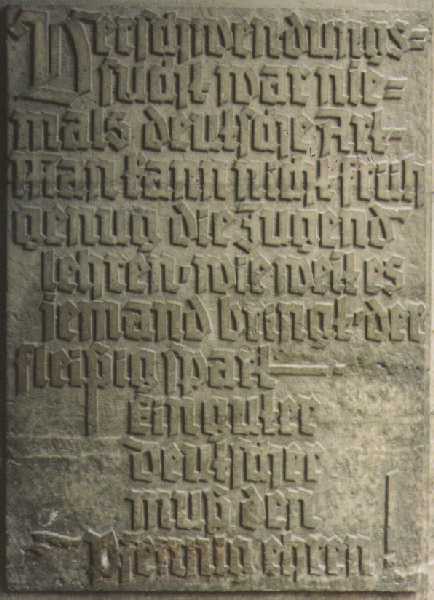 Verschwendungs=
sucht war nie=
mals deutsche Art·
Man kann nicht früh
genug die Jugend
lehren·wie weit es
jemand bringt·der
fleißig spart —
Ein guter
deutscher
muß den
Pfennig ehren!